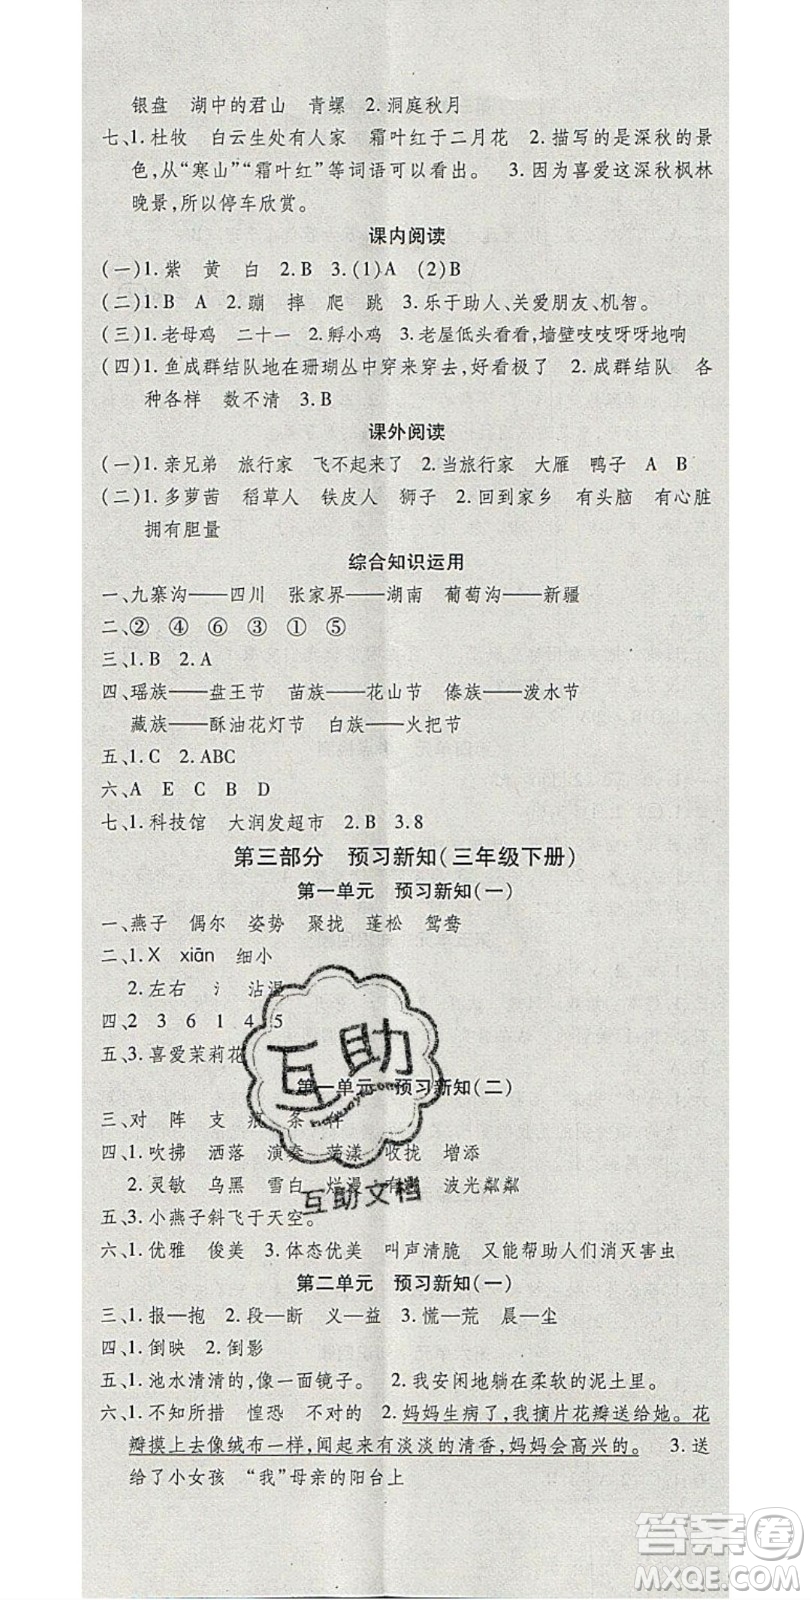 银盘　湖中的君山　青螺　2.洞庭秋月
七、1.杜牧　白云生处有人家　霜叶红于二月花　2.描写的是深秋的景
色,从“寒山”“霜叶红”等词语可以看出。　3.因为喜爱这深秋枫林
晚景,所以停车欣赏。
课内阅读
(一)1.紫　黄　白　2.B　3.(1)A　(2)B
(二)1.B　A　2.蹦　摔　爬　跳　3.乐于助人、关爱朋友、机智。
(三)1.老母鸡　二十一　2.孵小鸡　3.老屋低头看看,墙壁吱吱呀呀地响
(四)1.鱼成群结队地在珊瑚丛中穿来穿去,好看极了　2.成群结队　各
种各样　数不清　3.B
课外阅读
(一)1.亲兄弟　旅行家　飞不起来了　2.当旅行家　大雁　鸭子　A　B
(二)1.多萝茜　稻草人　铁皮人　狮子　2.回到家乡　有头脑　有心脏
拥有胆量
综合知识运用
一、九寨沟——四川　张家界——湖南　葡萄沟——新疆
二、②　④　⑥　③　①　⑤
三、1.B　2.A
四、瑶族——盘王节　苗族——花山节　傣族——泼水节
藏族——酥油花灯节　白族——火把节
五、1.C　2.ABC
六、A　E　C　B　D
七、1.科技馆　大润发超市　2.B　3.8
第三部分　预习新知(三年级下册)
第一单元　预习新知(一)
一、燕子　偶尔　姿势　聚拢　蓬松　鸳鸯
二、1.X　xiān　细小
2.左右　氵　沾湿
四、2　3　6　1　4　5
五、3.喜爱茉莉花
第一单元　预习新知(二)
三、对　阵　支　瓶　条　样
四、1.吹拂　洒落　演奏　荡漾　收拢　增添
2.灵敏　乌黑　雪白　烂漫　有　波光粼粼
五、3.小燕子斜飞于天空。
六、1.优雅　俊美　3.体态优美　叫声清脆　又能帮助人们消灭害虫
第二单元　预习新知(一)
三、1.报—抱　2.段—断　义—益　3.慌—荒　晨—尘
四、1.倒映　2.倒影
五、1.池水清清的,像一面镜子。　2.我安闲地躺在柔软的泥土里。
六、1.不知所措　惶恐　不对的　2.妈妈生病了,我摘片花瓣送给她。花
瓣摸上去像绒布一样,闻起来有淡淡的清香,妈妈会高兴的。　3.送
给了小女孩　“我”母亲的阳台上
互助
互助文档
答案圈
MXQE.COM